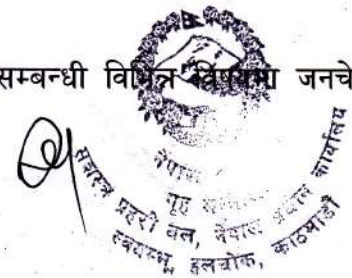 सम्बन्धी विभिन्न विषयमा जनचे
नेपाल
गृह
सशस्त्र प्रहरी बल, नेपाल प्रधान कार्यालय
स्वयम्भू, हलचोक, काठमाडौं